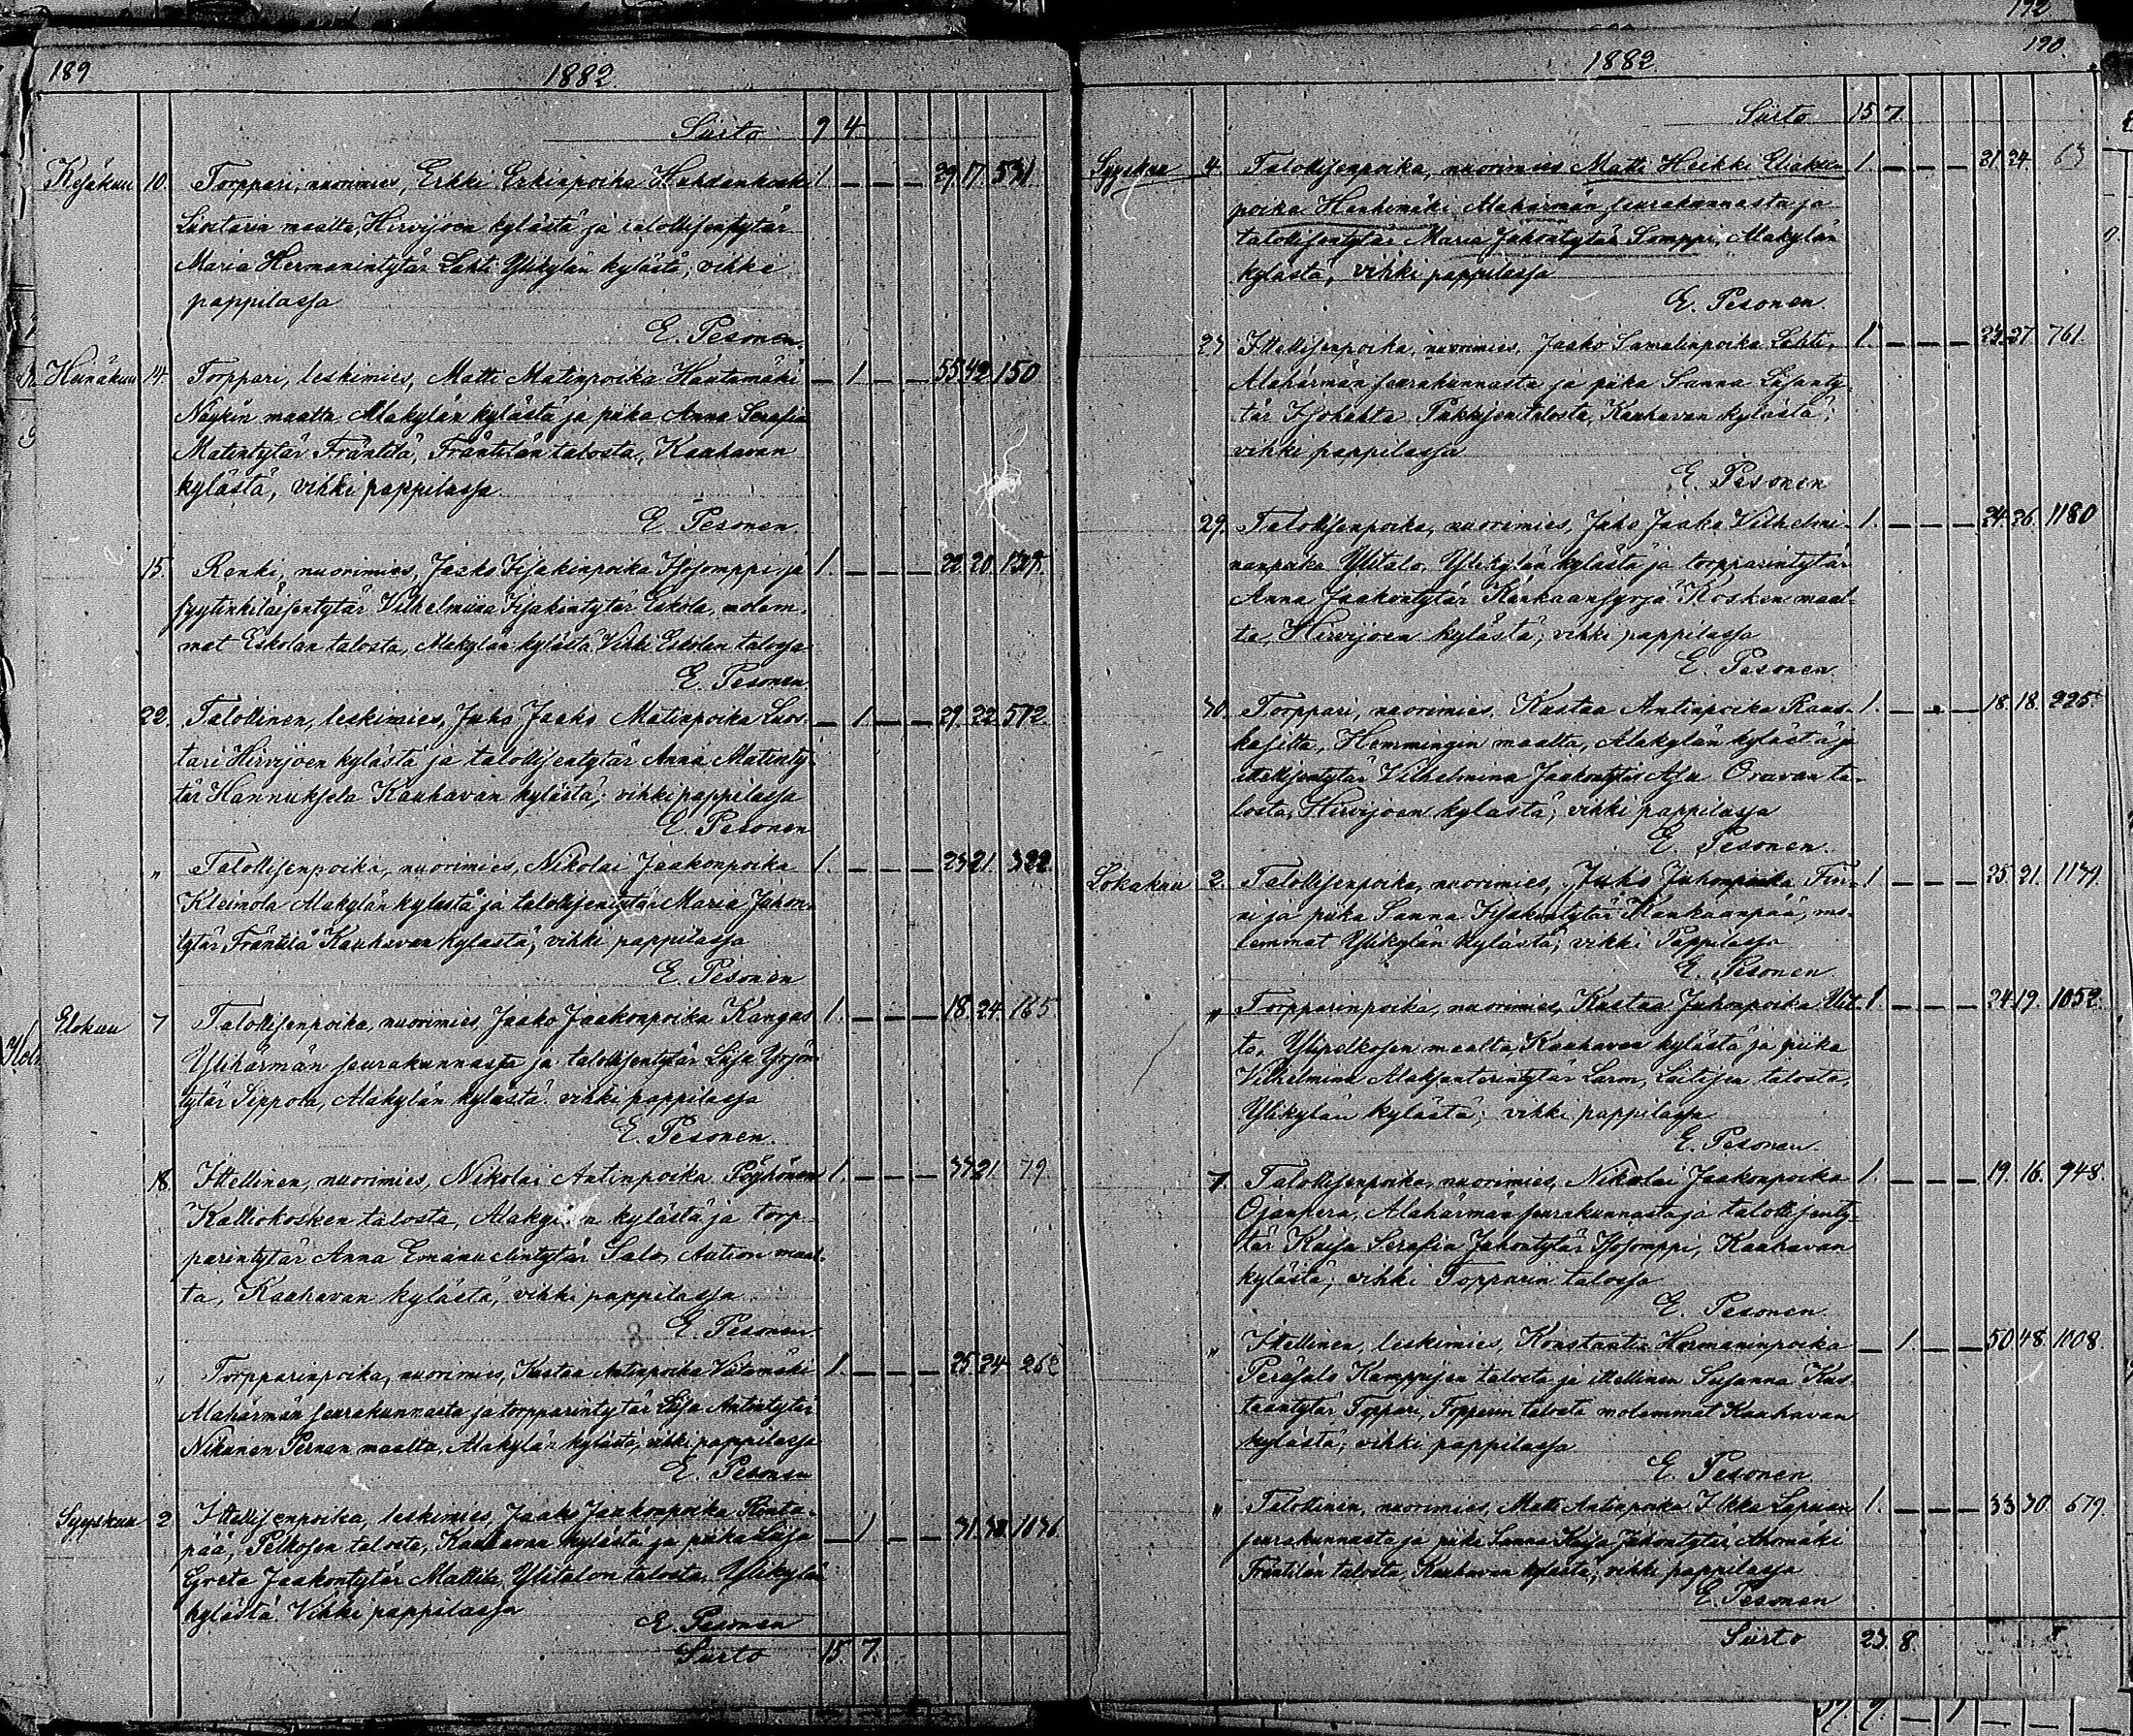 189
1882.
Siirto 9 4
Kesäkuu 10. Torppari, nuorimies, Erkki Erkinpoika Hahdenkoski 1. — — — 29. 17. 531.
Luostarin maalta, Hirvijoen kylästä ja talollisentytär
Maria Hermanintytär Lahti Ylikylän kylästä, vihki
pappilassa
E. Pesonen.
Heinäkuu 14. Torppari, leskimies, Matti Matinpoika Hautamäki — 1 — — 55 42 150
Näykin maalta Alakylän kylästä ja piika Anna Serafia
Matintytär Fräntilä, Fräntilän talosta, Kauhavan
kylästä, vihki pappilassa
E. Pesonen.
15. Renki, nuorimies, Jaako Iisakinpoika Isosomppi ja 1. — — — 22. 20.
syytinkiläisentytär Vilhelmiina Iisakintytär Eskola, molem-
mat Eskolan talosta, Alakylän kylästä. Vihki Eskolan talossa
E. Pesonen.
22. Talollinen, leskimies, Juho Jaako Matinpoika Luos- — 1 — — 29. 22. 572
tari Hirvijoen kylästä ja talollisentytär Anna Matinty-
tär Hannuksela Kauhavan kylästä; vihki pappilassa
E. Pesonen
„ Talollisenpoika, nuorimies, Nikolai Jaakonpoika 1. — — — 23 21. 322.
Kleimola Alakylän kylästä ja talollisentytär Maria Juhon-
tytär Fräntilä Kauhavan kylästä, vihki pappilassa
E. Pesonen
Elokuu 7 Talollisenpoika, nuorimies, Jaako Jaakonpoika Kangas 1. — — — 18. 24. 165.
Ylihärmän seurakunnassa ja talollisentytär Liisa Yrjön-
tytär Sippola, Alakylän kylästä. vihki pappilassa
E. Pesonen.
18. Ittellinen, nuorimies, Nikolai Antinpoika Pöyhönen 1. — — — 33 21. 79.
Kalliokosken talosta, Alakylän kylästä ja torp-
parintytär Anna Emanuelintytär Salo, Aution maal-
ta, Kauhavan kylästä, vihki pappilassa
8 E. Pesonen.
„ Torpparinpoika, nuorimies, Kustaa Antinpoika Viitamäki 1. — — — 25. 24. 262
Alahärmän seurakunnasta ja torpparintytär Liisa Antintytär
Nikunen Pernan maalta, Alakylän kylästä, vihki pappilassa
E. Pesonen
Syyskuu 2 Ittellisenpoika, leskimies, Jaako Jaakonpoika Rinta-
pää, Pelkosen talosta, Kauhavan kylästä ja piika Liisa — 1 — — 31. 30. 1036
Greta Jaakontytär Mattila, Ylitalon talosta Ylikylän
kylästä. Vihki pappilassa
E. Pesonen
Siirto 15. 7.
192
190.
1882.
Siirto 15 7
Syyskuu 4. Talollisenpoika, nuorimies Matti Heikki Eliaksen 1. — — — 21. 24. 63
poika Hanhimäki Alahärmän seurakunnasta ja
talollisentytär Maria Juhontytär Somppi, Alakylän
kylästä, vihki pappilassa
E. Pesonen.
23 Ittellisenpoika, nuorimies, Jaako Samulinpoika Lahti, 1. — — — 23. 27. 761.
Alahärmän seurakunnasta ja piika Sanna Liisanty-
tär Isohahta Pukkisen talosta, Kauhavan kylästä;
vihki pappilassa
E. Pesonen
29. Talollisenpoika, nuorimies, Juho Jaako Vilhelmi- 1. — — — 24. 26. 1180
nanpoika Ylitalo, Ylikylän kylästä ja torpparintytär
Anna Jaakontytär Kankaansyrjä Kosken maal-
ta, Hirvijoen kylästä; vihki pappilassa
E. Pesonen.
30. Torppari, nuorimies, Kustaa Antinpoika Raus- 1. — — — 18. 18. 225.
kasilta, Hemmingin maalta, Alakylän kylästä ja
ittellisentytär Vilhelmina Jaakontytär Asu Oravan ta-
losta, Hirvijoen kylästä; vihki pappilassa
E. Pesonen.
Lokakuu 2. Talollisenpoika, nuorimies, Juho Juhonpoika Fin- 1 — — — 25. 21. 1139.
ni ja piika Sanna Iisakintytär Kankaanpää, mo-
lemmat Ylikylän kylästä; vihki Pappilassa
E. Pesonen.
„ Torpparinpoika, nuorimies, Kustaa Juhonpoika 1. — — — 24. 19. 1052.
Ylipelkosen maalta, Kauhavan kylästä ja piika
Vilhelmina Aleksanterintytär Larm, Laitisen talosta,
Ylikylän kylästä; vihki pappilassa
E. Pesonen.
7. Talollisenpoika, nuorimies, Nikolai Jaakonpoika 1. — — — 19. 16. 948.
Ojanperä, Alahärmän seurakunnasta ja talollisenty-
tär Kaisa Serafia Juhontytär Isosomppi, Kauhavan
kylästä; vihki Topparin talossa
E. Pesonen.
„ Ittellinen, leskimies, Konstantin Hermaninpoika — 1. — — 50. 48. 1008.
Peräsalo Kamppisen talosta ja ittellinen Susanna Kus-
taantytär Toppari, Topparin talosta molemmat Kauhavan
kylästä; vihki pappilassa
E. Pesonen
„ Talollinen, nuorimies, Matti Antinpoika Ilkka Lapuan 1. — — — 33. 30. 679.
seurakunnasta ja piika Sanna Kaisa Juhontytär Ahomäki
Fräntilän talosta, Kauhavan kylästä; vihki pappilassa
E. Pesonen
Siirto 23. 8.